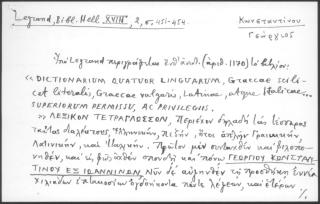 Legrand, Bibl. Hell. XVIII^e, 2, σ. 451-454.
Κωνσταντίνου
Γεώργιος
Ὑπὸ Legrand περιγράφεται (ἀριθ. 1170) τὸ βιβλίον:
« DICTIONARIUM QUATUOR LINGUARUM, Graecae scili-
cet literalis, Graecae vulgaris, Latinae, atque Italicae...
SUPERIORUM PERMISSU, AC PRIVILEGIIS.
» ΛΕΞΙΚΟΝ ΤΕΤΡΑΓΛΩΣΣΟΝ, Περιέχον δηλαδὴ τὰς τέσσαρας
ταύτας διαλέκτους, Ἑλληνικήν, πεζήν, ἤτοι ἁπλῆν Γραικικήν,
Λατινικήν, καὶ Ἰταλικήν. Πρῶτον μὲν συνταχθὲν καὶ φιλοπο-
νηθέν, καὶ σπουδῇ καὶ πόνῳ ΓΕΩΡΓΙΟΥ ΚΩΝΣΤΑΝ-
ΤΙΝΟΥ ΕΞ ΙΩΑΝΝΙΝΩΝ, Νῦν δὲ αὐξηθὲν τῇ προσθήκῃ ἐννέα
χιλιάδων ἑπτακοσίων ὀγδοήκοντα πέντε λέξεων, καὶ ἑτέρων